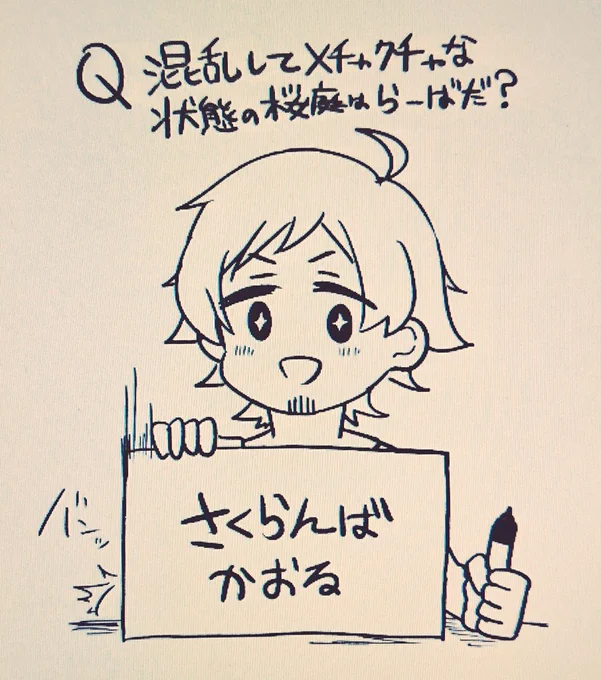 Q 混乱してメチャクチャな
状態の桜庭はらーばだ?
バンッ
さくらんば
かおる